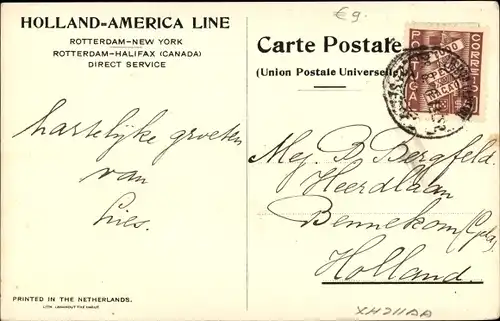 HOLLAND-AMERICA LINE
ROTTERDAM–NEW YORK
ROTTERDAM–HALIFAX (CANADA)
DIRECT SERVICE
€ 9.
Carte Postale
(Union Postale Universelle)
PORTUGAL
CORREIO
hartelijke groeten
van
Lies.
Mej. B. Bergfeld.
Heerdlaan
Bennekom (Gld.)
Holland.
PRINTED IN THE NETHERLANDS.
XH211AA